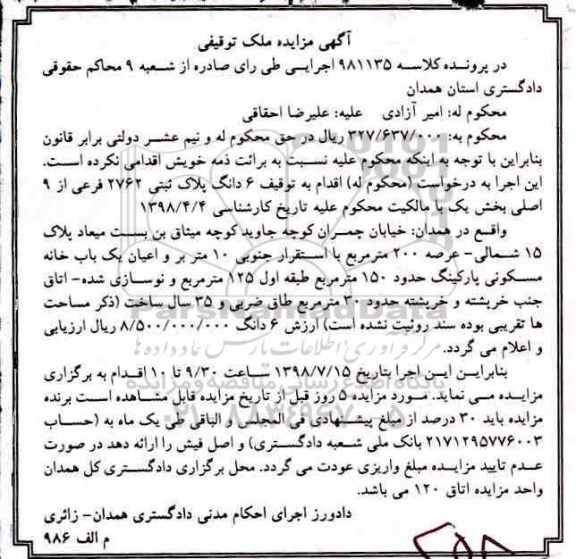 آگهی مزایده ملک توقیفی
در پرونده کلاسه ۹۸۱۱۳۵ اجرایی طی رای صادره از شعبه ۹ محاکم حقوقی
دادگستری استان همدان
محکوم له: امیر آزادی علیه: علیرضا احقاقی
محکوم به: ۳۲۷/۶۳۷/۰۰۰ ریال در حق محکوم له و نیم عشر دولتی برابر قانون
بنابراین با توجه به اینکه محکوم علیه نسبت به برائت ذمه خویش اقدامی نکرده است.
این اجرا به درخواست (محکوم له) اقدام به توقیف ۶ دانگ پلاک ثبتی ۲۷۶۲ فرعی از ۹
اصلی بخش یک با مالکیت محکوم علیه تاریخ کارشناسی ۱۳۹۸/۴/۴
واقع در همدان: خیابان چمران کوچه جاوید کوچه میثاق بن بست میعاد پلاک
۱۵ شمالی- عرصه ۲۰۰ مترمربع با استقرار جنوبی ۱۰ متر بر و اعیان یک باب خانه
مسکونی پارکینگ حدود ۱۵۰ مترمربع طبقه اول ۱۲۵ مترمربع و نوسازی شده- اتاق
جنب خرپشته و خرپشته حدود ۳۰ مترمربع طاق ضربی و ۳۵ سال ساخت (ذکر مساحت
ها تقریبی بوده سند روئیت نشده است) ارزش ۶ دانگ ۸/۵۰۰/۰۰۰/۰۰۰ ریال ارزیابی
و اعلام می گردد.
بنابراین این اجرا بتاریخ ۱۳۹۸/۷/۱۵ ساعت ۹/۳۰ تا ۱۰ اقدام به برگزاری
مزایده می نماید. مورد مزایده ۵ روز قبل از تاریخ مزایده قابل مشاهده است برنده
مزایده باید ۳۰ درصد از مبلغ پیشنهادی فی المجلس و الباقی طی یک ماه به (حساب
۲۱۷۱۲۹۵۷۷۶۰۰۳ بانک ملی شعبه دادگستری) و اصل فیش را ارائه دهد در صورت
عدم تایید مزایده مبلغ واریزی عودت می گردد. محل برگزاری دادگستری کل همدان
واحد مزایده اتاق ۱۲۰ می باشد.
دادورز اجرای احکام مدنی دادگستری همدان- زائری
م الف ۹۸۶